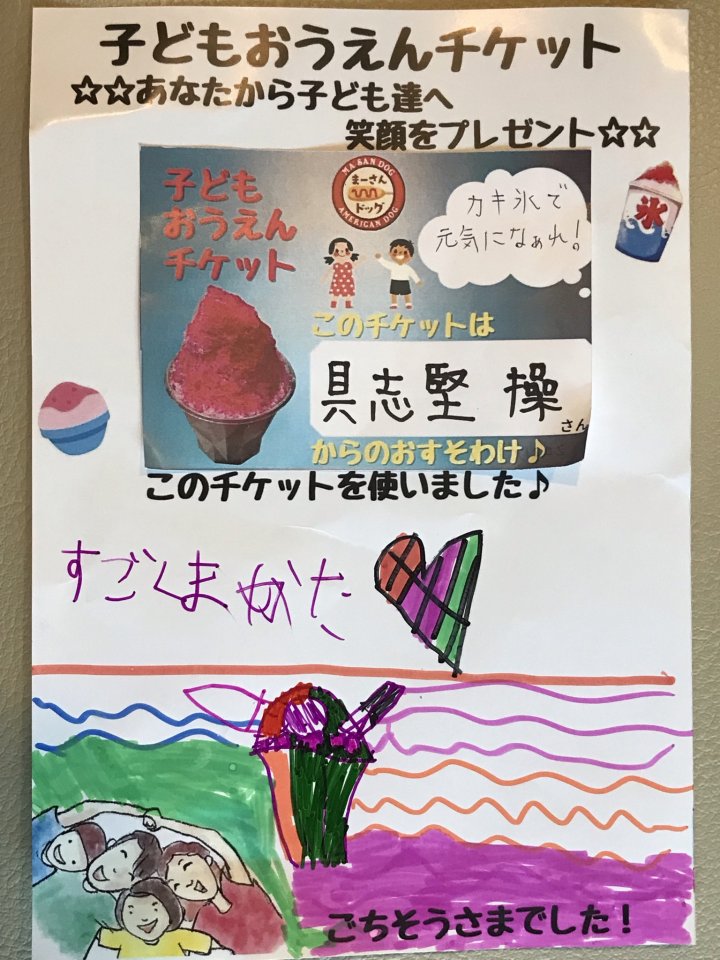 子どもおうえんチケット
☆☆あなたから子ども達へ
笑顔をプレゼント☆☆
子ども
おうえん
チケット
MA-SAN DOG
まーさん
ドッグ
AMERICAN DOG
カキ氷で
元気になぁれ!
氷
このチケットは
具志堅 操
さん
からのおすそわけ♪
このチケットを使いました♪
すごくまかた
ごちそうさまでした!